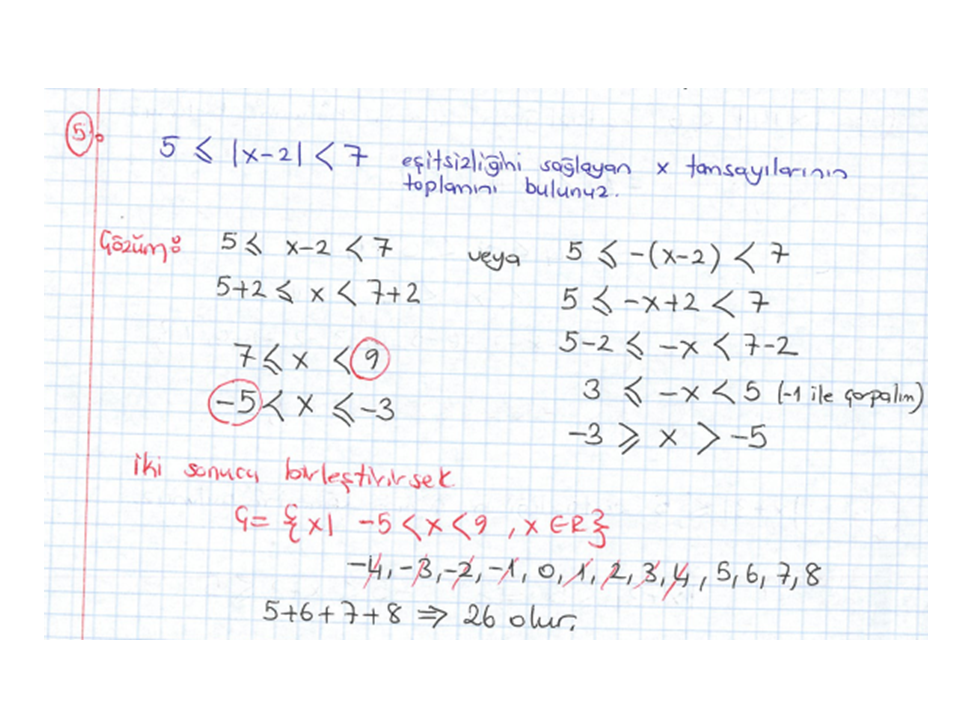 5.
5 ≤ |x-2| < 7 eşitsizliğini sağlayan x tamsayılarının
toplamını bulunuz.
Çözüm: 5 ≤ x-2 < 7 veya 5 ≤ -(x-2) < 7
5+2 ≤ x < 7+2 5 ≤ -x+2 < 7
5-2 ≤ -x < 7-2
7 ≤ x < 9
3 ≤ -x < 5 (-1 ile çarpalım)
-5 < x ≤ -3
-3 ≥ x > -5
İki sonucu birleştirirsek
Ç= {x| -5 < x < 9 , x ∈ R}
-4, -3, -2, -1, 0, 1, 2, 3, 4, 5, 6, 7, 8
5+6+7+8 ⇒ 26 olur.